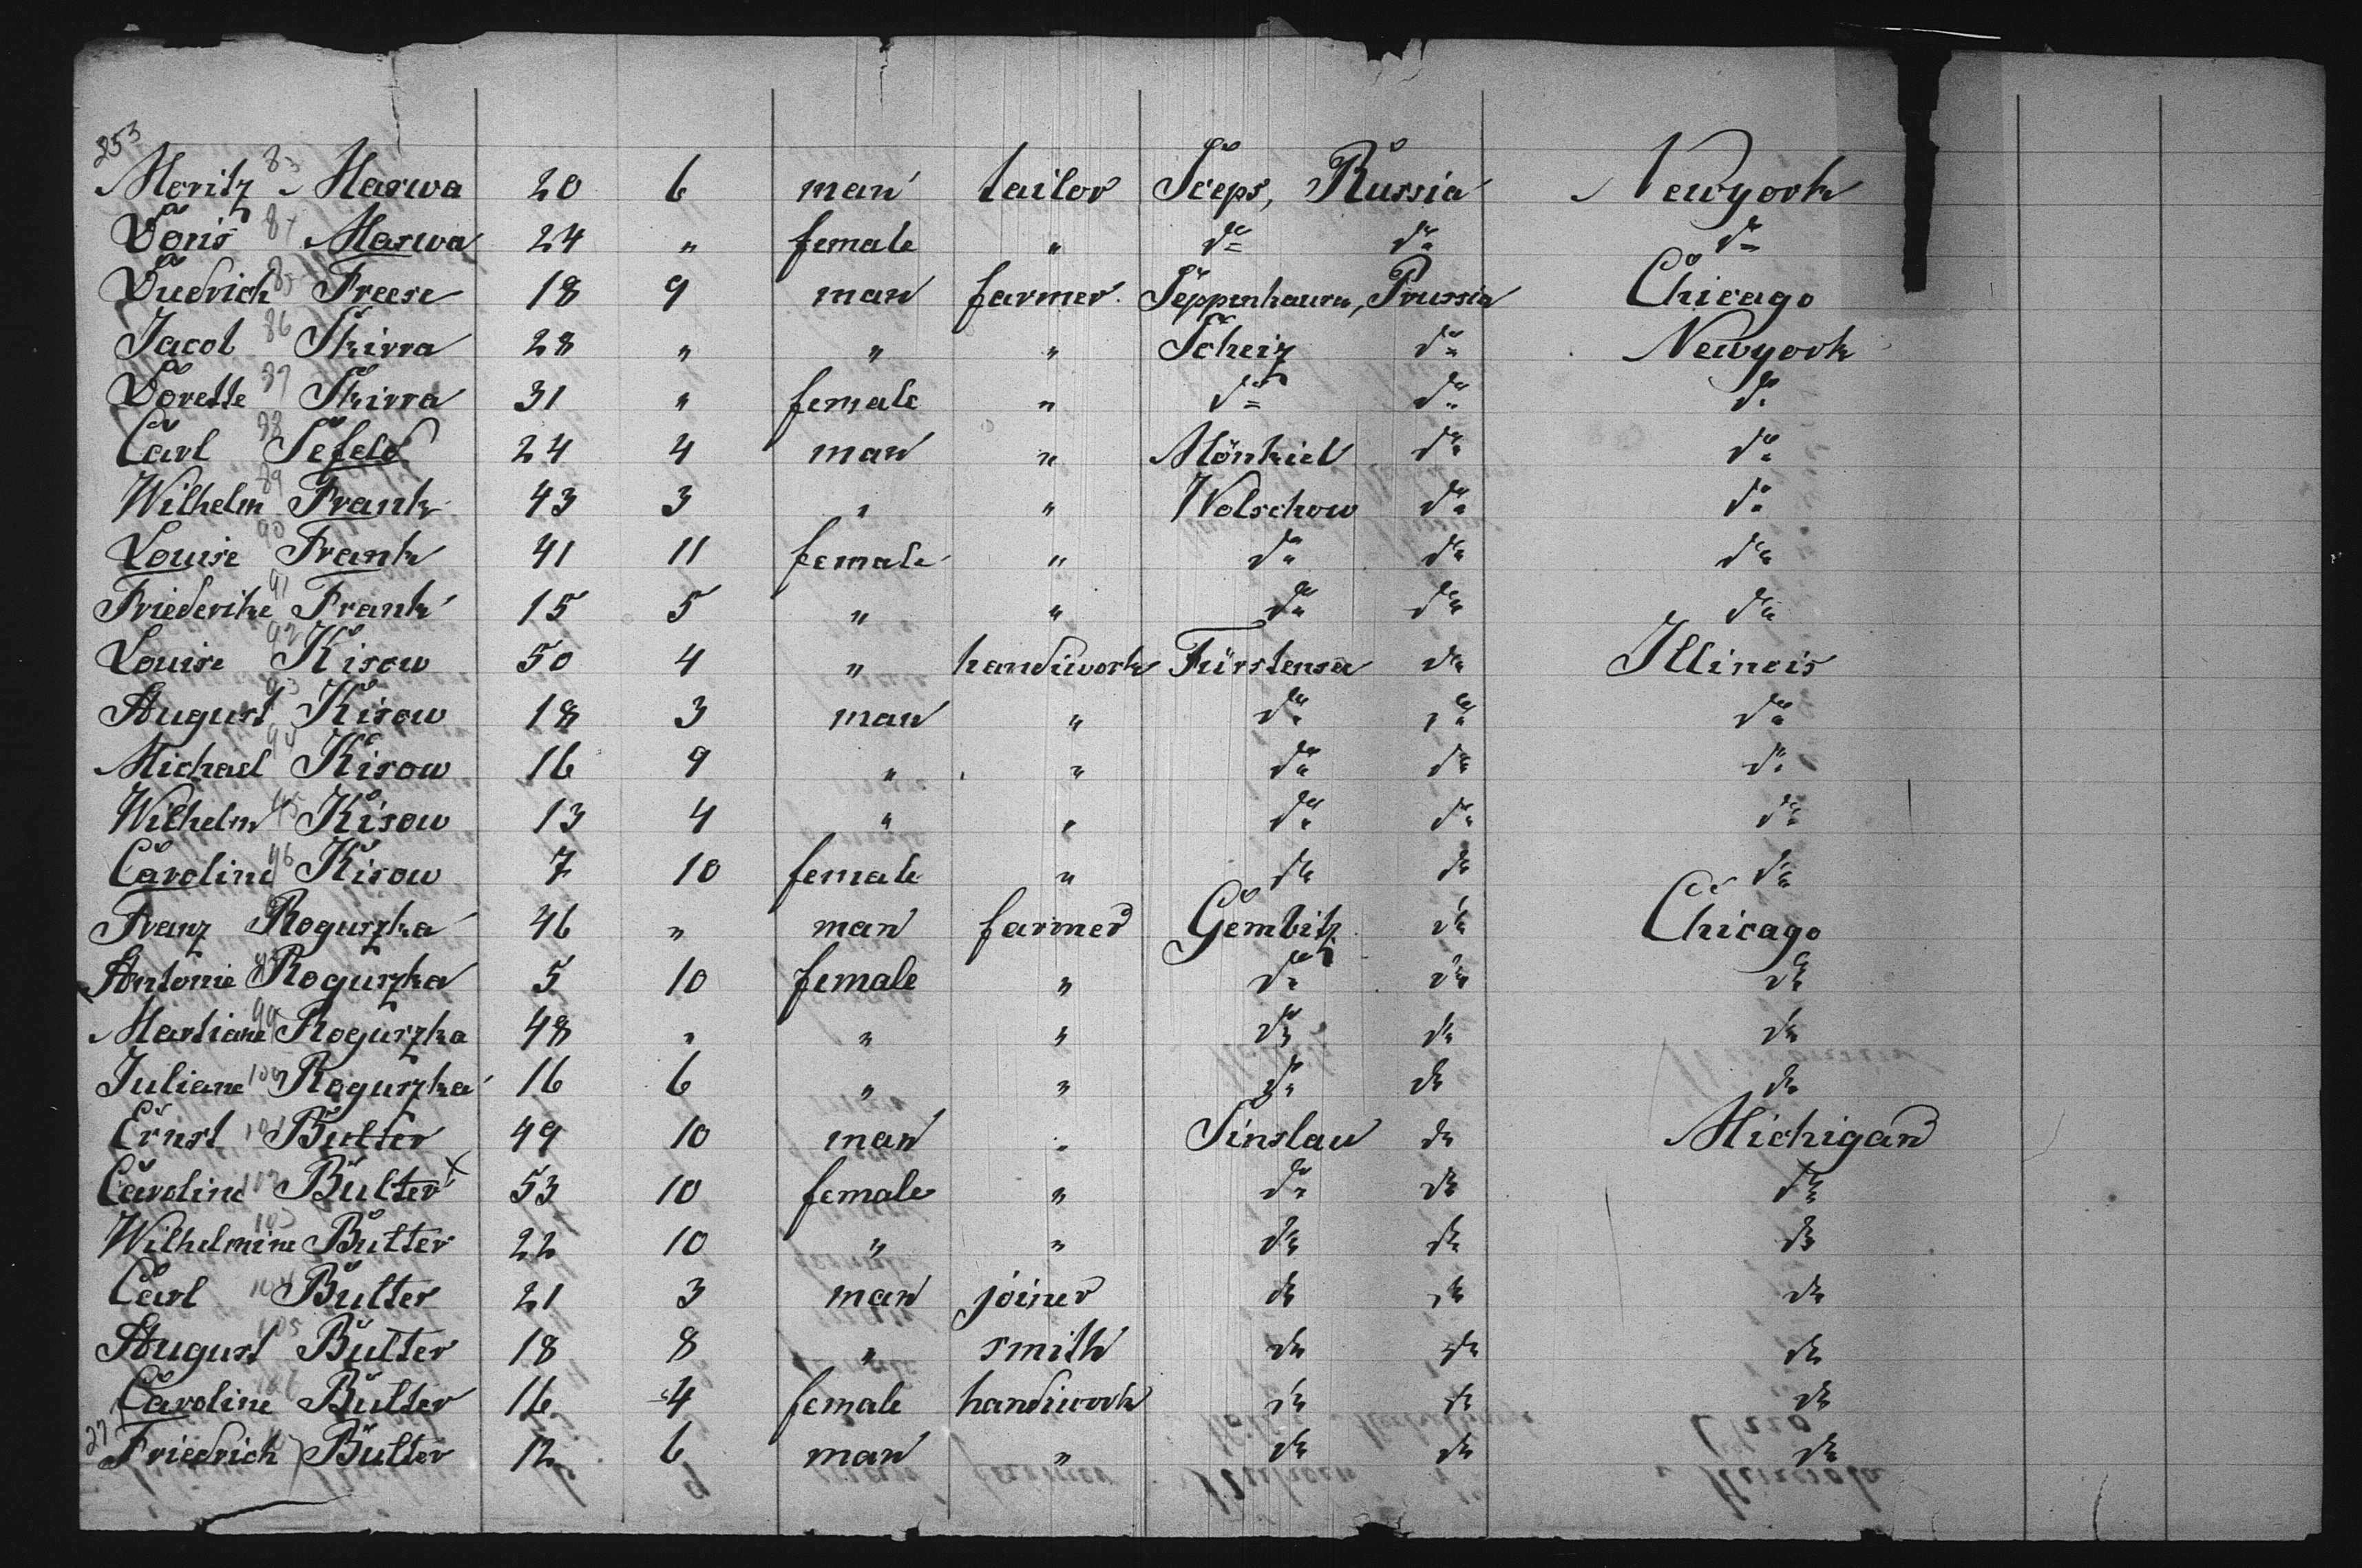 253
Moritz 83 Marwa 20 6 man tailor Seeps, Russia Newyork
Doris 84 Marwa 24 " female " do do do
Diedrich 85 Freese 18 9 man farmer Seppenhausen, Prussia Chicago
Jacob 86 Skirra 28 " " " Scheiz do Newyork
Dorette 87 Skirra 31 " female " do do do
Carl 88 Sefeld 24 4 man " Mönkiel do do
Wilhelm 89 Frank 43 3 " " Wolschow do do
Louise 90 Frank 41 11 female " do do do
Friederike 91 Frank 15 5 " " do do do
Louise 92 Kisow 50 4 " handiwork Fürstensee do Illinois
August 93 Kisow 18 3 man " do do do
Michael 94 Kisow 16 9 " " do do do
Wilhelm 95 Kisow 13 4 " " do do do
Caroline 96 Kisow 7 10 female " do do do
Franz Roguszka 46 " man farmer Gembitz do Chicago
Antonie 98 Roguszka 5 10 female " do do do
Martiane 99 Roguszka 48 " " " do do do
Juliane 100 Roguszka 16 6 " " do do do
Ernst 101 Bulter 49 10 man " Sinslau do Michigan
Caroline 102 Bulter x 53 10 female " do do do
Wilhelmine 103 Bulter 22 10 " " do do do
Carl 104 Bulter 21 3 man joiner do do do
August 105 Bulter 18 8 " smith do do do
Caroline 106 Bulter 16 4 female handiwork do do do
Friedrich Bulter 12 6 man " do do do